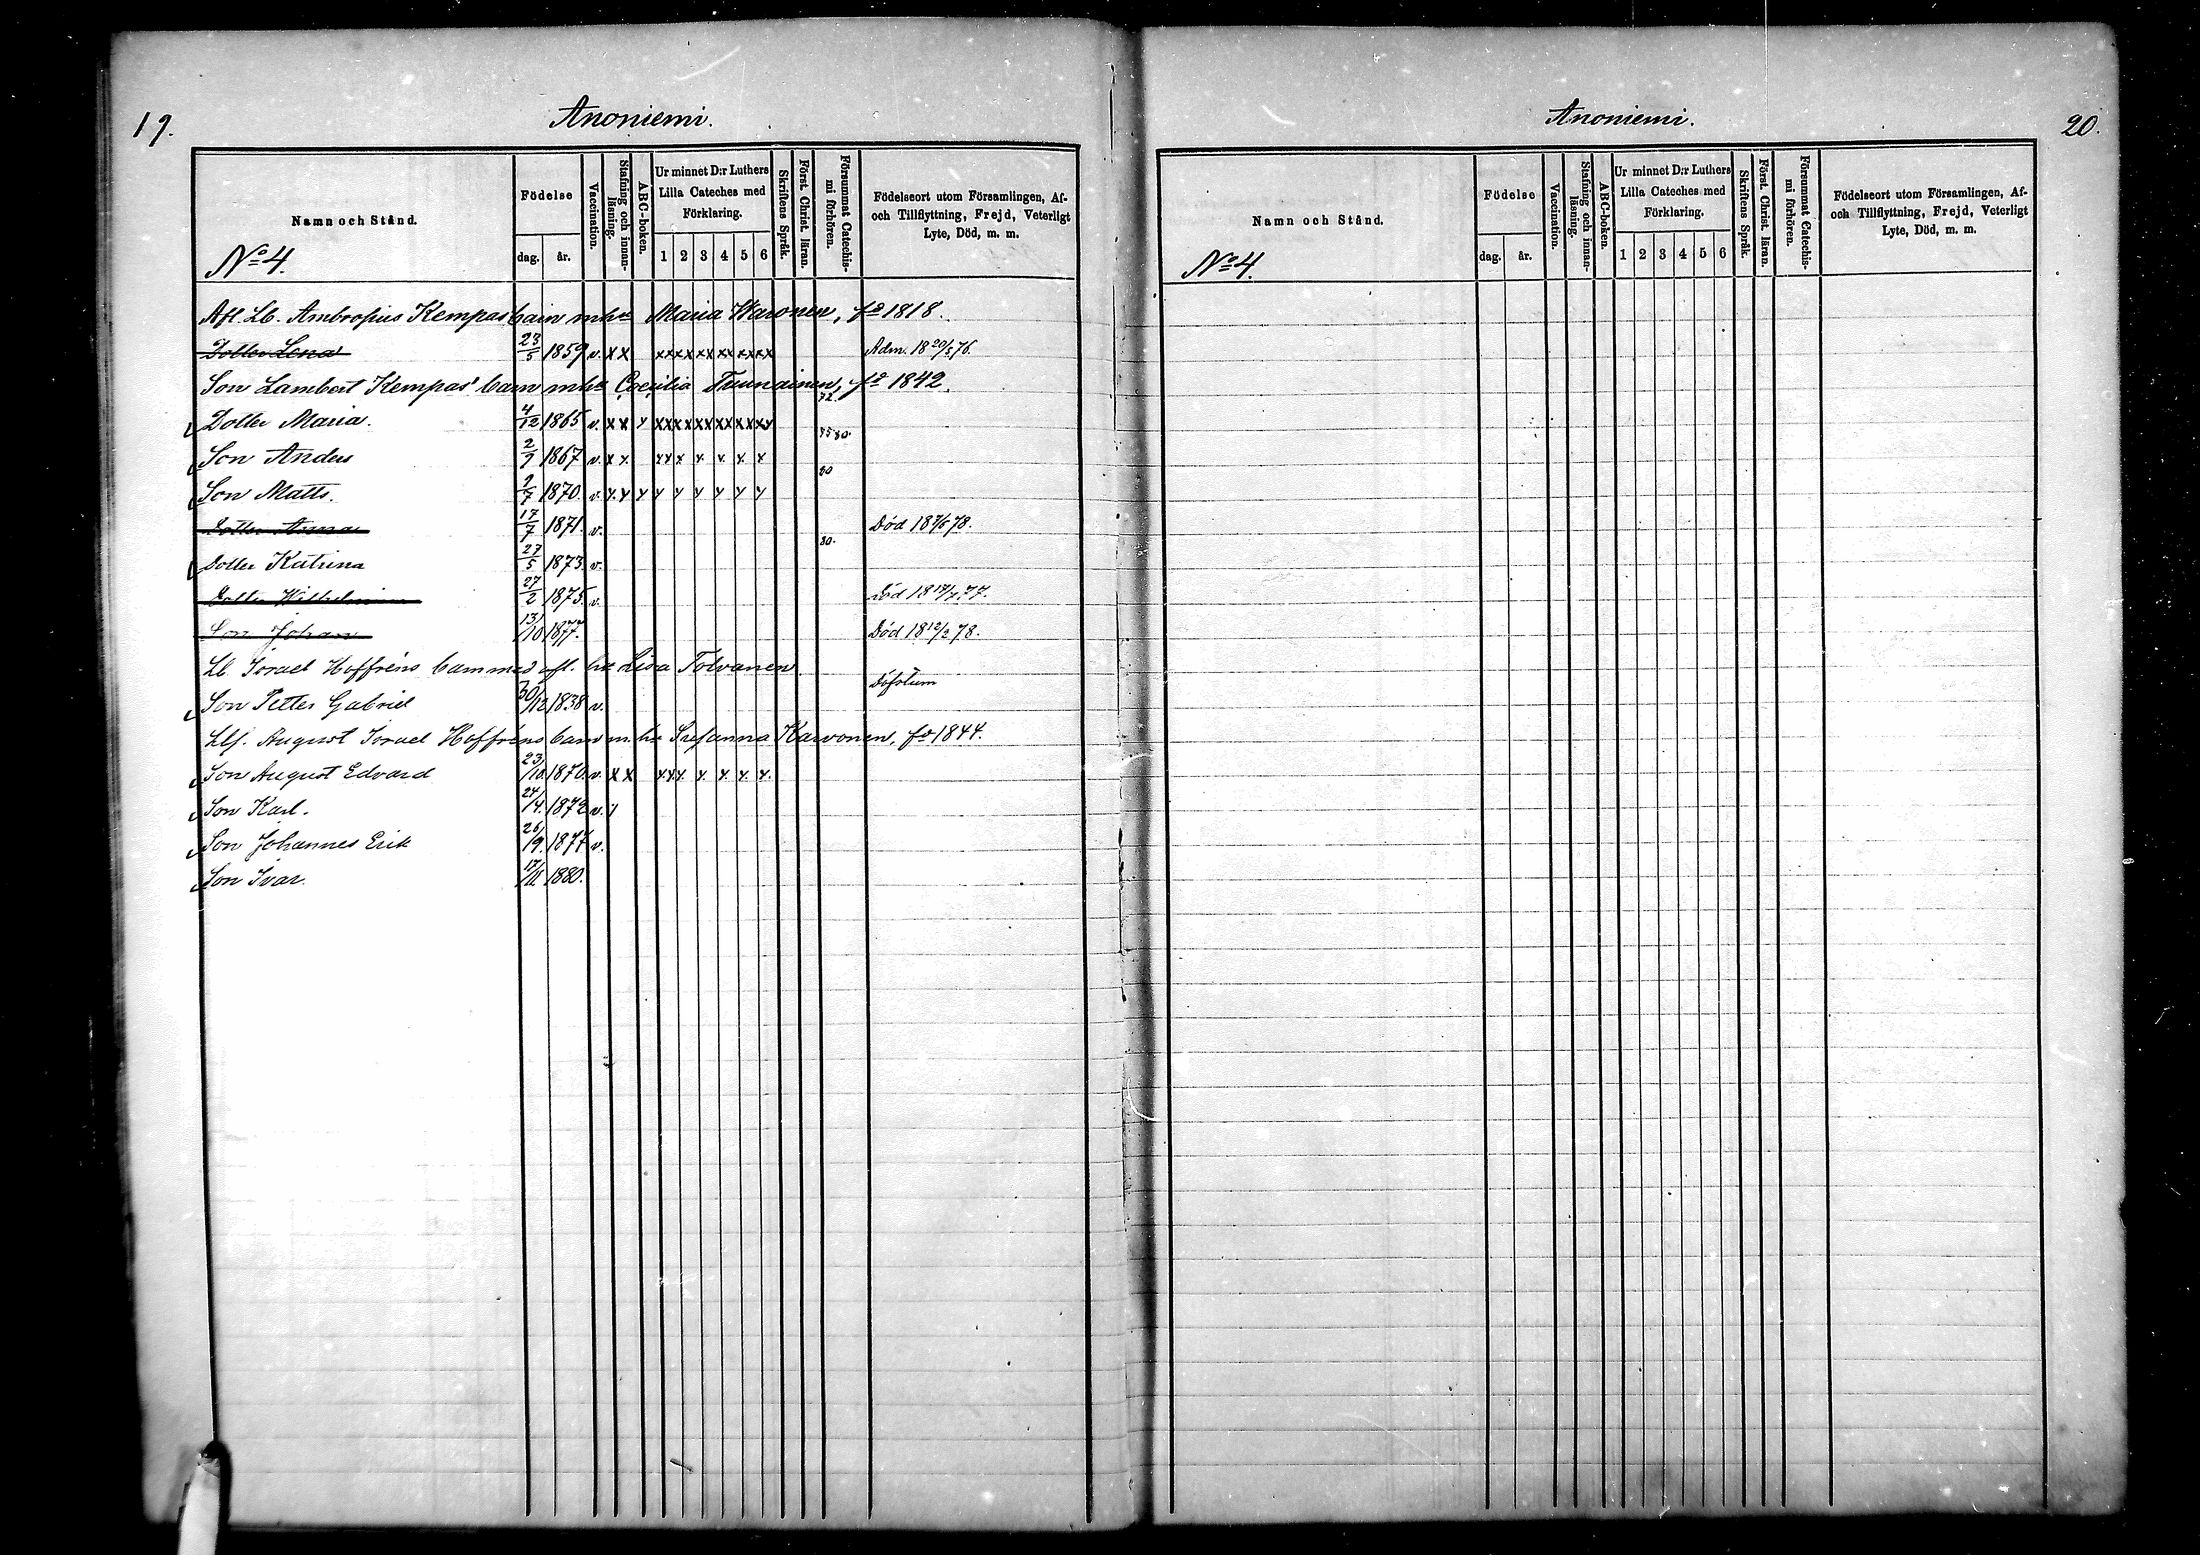 19.
Anoniemi.
Namn och Stånd.
Födelse
dag. år.
Vaccination.
Stafning och innan-läsning.
ABC-boken.
Ur minnet D:r Luthers Lilla Cateches med Förklaring.
1 2 3 4 5 6
Skriftens Språk.
Först. Christ. läran.
Försummat Catechis-mi förhören.
Födelseort utom Församlingen, Af- och Tillflyttning, Frejd, Veterligt Lyte, Död, m. m.
No 4.
Afl. Lb. Ambrosius Kempas barn m hu Maria Karonen, fd 1818.
Dotter Lena 23/5 1859 v. x x xxxx xx xx xxxx Adm. 18 20/5 76.
Son Lambert Kempas' barn m hu Cæcilia Tuunainen, fd 1842.
72.
Dotter Maria. 4/12 1865 v. x x y xx x x xx xx x x xy
75 80.
Son Anders 2/9 1867 v. x x xx x x x x x
80
Son Matts. 9/7 1870. v. y y y y y y y y y
Dotter Anna 17/7 1871. v. Död 18 7/5 78.
80.
Dotter Katrina 27/5 1873. v.
Dotter Wilhelmina 27/2 1875. v. Död 18 17/7 77.
Son Johan 13/10 1877. Död 18 12/2 78.
Lb. Israel Hoffréns barn med afl. hu Lisa Tolvanen
Son Petter Gabriel 30/12 1838 v. Döfstum
Lbs. August Israel Hoffréns barn m. hu Susanna Karvonen, fd 1844.
Son August Edvard 23/10. 1870. v. x x x x x x x x x.
Son Karl. 24/4. 1872 v. y
Son Johannes Erik 26/9. 1877 v.
Son Ivar. 17/11. 1880.
Anoniemi.
20.
Namn och Stånd.
Födelse
dag. år.
Vaccination.
Stafning och innan-läsning.
ABC-boken.
Ur minnet D:r Luthers Lilla Cateches med Förklaring.
1 2 3 4 5 6
Skriftens Språk.
Först. Christ. läran.
Försummat Catechis-mi förhören.
Födelseort utom Församlingen, Af- och Tillflyttning, Frejd, Veterligt Lyte, Död, m. m.
No 4.